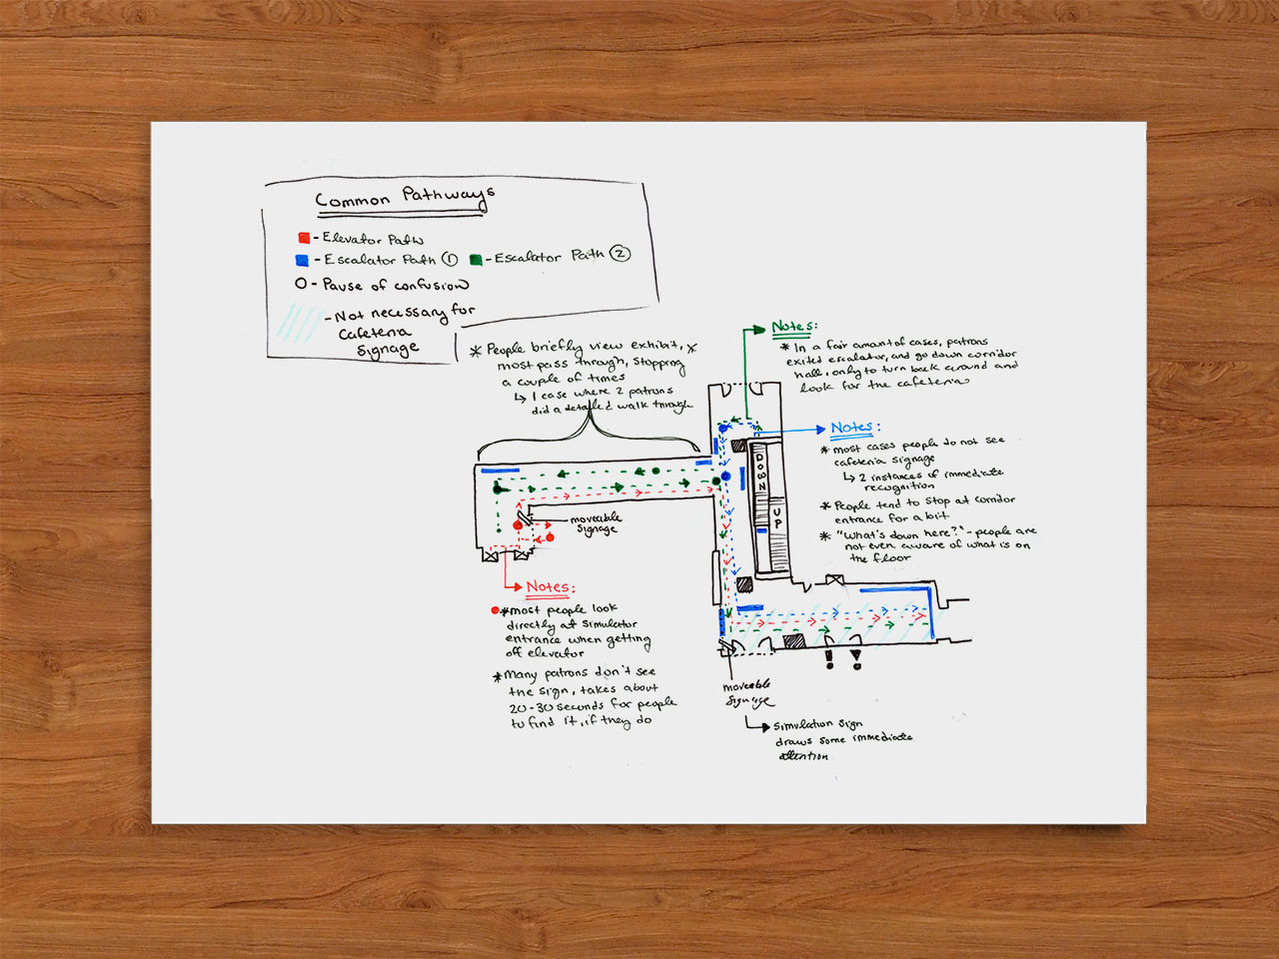 Common Pathways
- Elevator Path
- Escalator Path ① - Escalator Path ②
O - Pause of confusion
- Not necessary for
Cafeteria
Signage
* People briefly view exhibit, *
most pass through, stopping
a couple of times
↳ 1 case where 2 patrons
did a detailed walk through
Notes:
* In a fair amount of cases, patrons
exited escalator, and go down corridor
hall, only to turn back around and
look for the cafeteria
Notes:
* most cases people do not see
cafeteria signage
↳ 2 instances of immediate
recognition
* People tend to stop at corridor
entrance for a bit
* "What's down here?" - people are
not even aware of what is on
the floor
DOWN
UP
moveable
signage
Notes:
* most people look
directly at simulator
entrance when getting
off elevator
* Many patrons don't see
the sign, takes about
20-30 seconds for people
to find it, if they do
moveable
signage
↳ Simulation sign
draws some immediate
attention